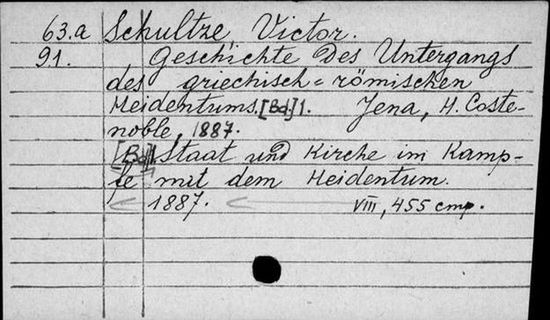 63.a Schultze Victor.
91. Geschichte des Untergangs
des griechisch-römischen
Heidentums. [Bd] 1. Jena, H. Coste-
noble, 1887.
[Bd] 1 Staat und Kirche im Kamp-
fe mit dem Heidentum.
1887. VIII, 455 стр.